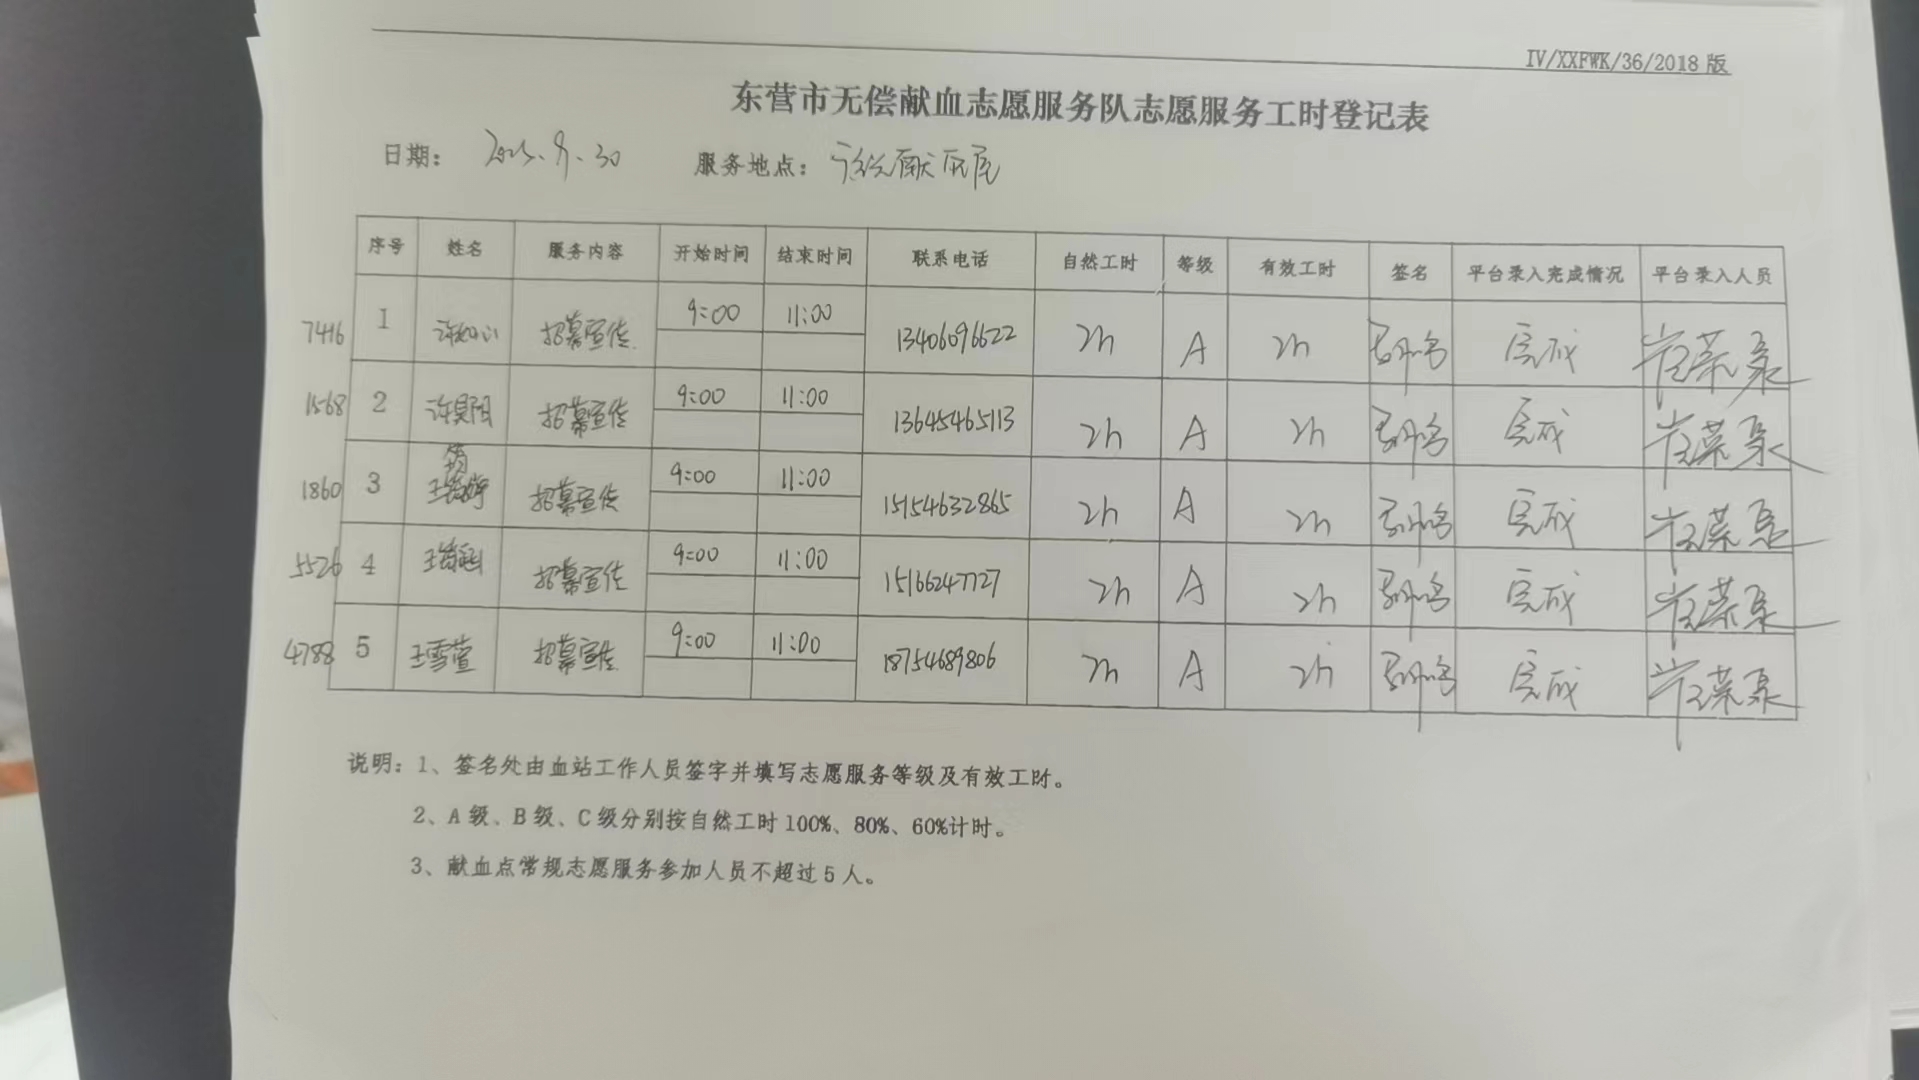 IV/XXFWK/36/2018 版
东营市无偿献血志愿服务队志愿服务工时登记表
日期： 9.30 服务地点： 献血屋
序号 姓名 服务内容 开始时间 结束时间 联系电话 自然工时 等级 有效工时 签名 平台录入完成情况 平台录入人员
7416 1 招募宣传 9:00 11:00 13406096622 2h A 2h 完成
1568 2 许昊阳 招募宣传 9:00 11:00 13645465113 2h A 2h 完成
1860 3 招募宣传 9:00 11:00 15154632865 2h A 2h 完成
5526 4 招募宣传 9:00 11:00 15166247727 2h A 2h 完成
4788 5 王雪萱 招募宣传 9:00 11:00 18754689806 2h A 2h 完成
说明：1、签名处由血站工作人员签字并填写志愿服务等级及有效工时。
2、A 级、B 级、C 级分别按自然工时 100%、80%、60%计时。
3、献血点常规志愿服务参加人员不超过 5 人。